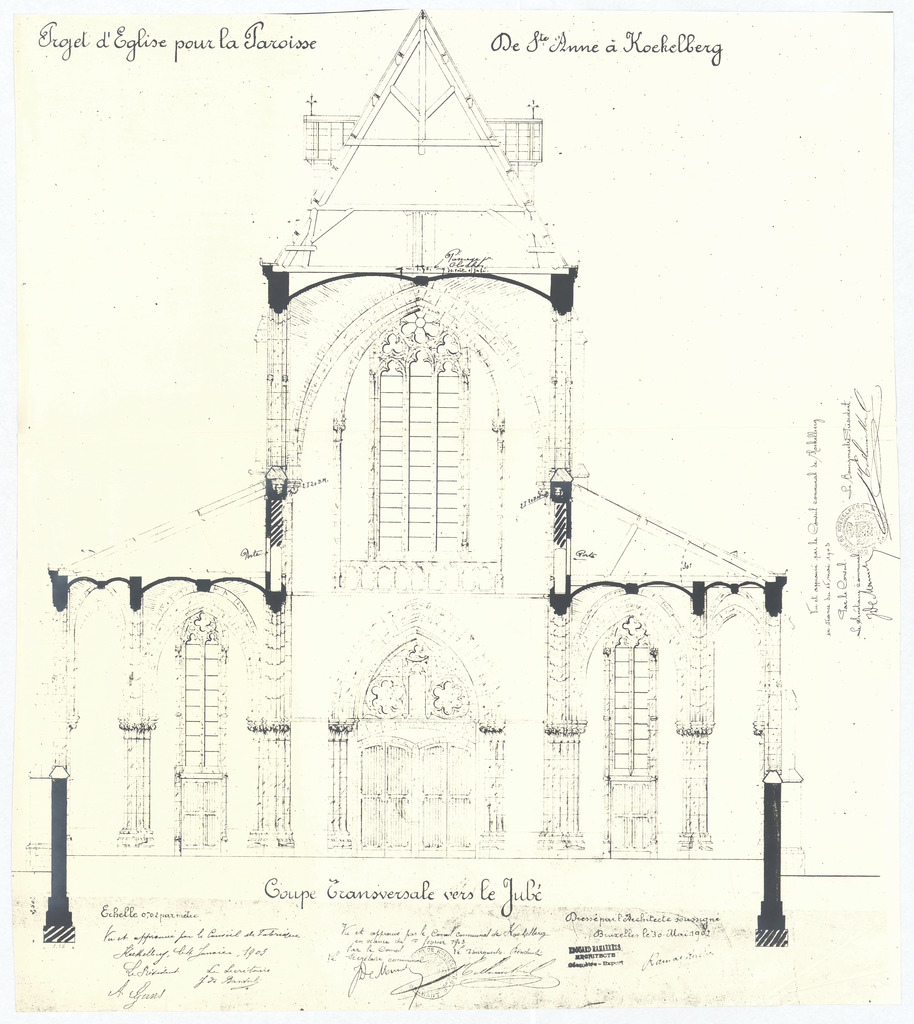 Projet d'Eglise pour la Paroisse De Ste Anne à Koekelberg
Porte
Porte
Vu et approuvé par le Conseil communal de Koekelberg
en séance du
Par le Conseil
Le Secrétaire communal Le Bourgmestre Président
Coupe Transversale vers le Jubé
Echelle 0,02 par mètre
Vu et approuvé par le Conseil de Fabrique
Koekelberg, le 4 Janvier 1903
Le Président Le Secrétaire
Vu et approuvé par le Conseil communal de Koekelberg
en séance du février 1903
Par le Conseil
Le Secrétaire communal Le Bourgmestre Président
Dressé par l'Architecte soussigné
Bruxelles le 30 Mai 1902
EDOUARD RAMAEKERS
ARCHITECTE
Géomètre - Expert